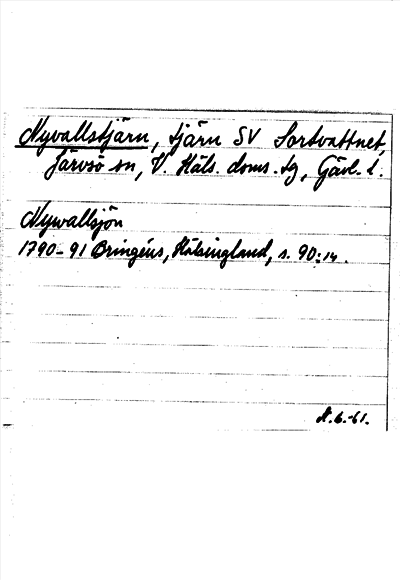 Nyvallstjärn, tjärn SV Sortvattnet,
Järvsö sn, V. Häls. doms. tg, Gävl. l.
Nywallsjön
1790-91 Bringéus, Hälsingland, s. 90:14.
N.6.-61.